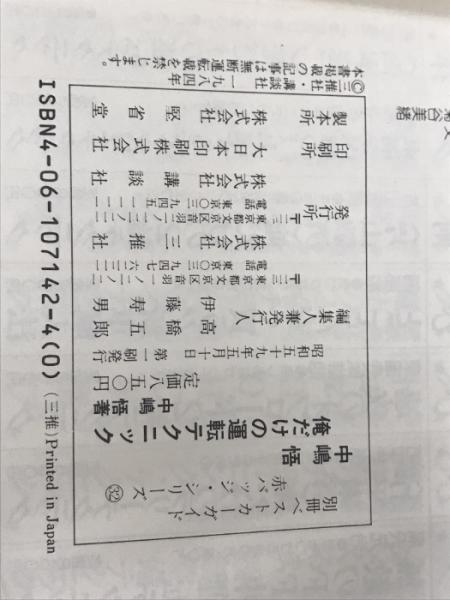 別冊ベストカーガイド
赤バッジ・シリーズ㉜
中嶋悟
俺だけの運転テクニック
中嶋悟著
定価八五〇円
昭和五十九年五月十日 第一刷発行
編集人兼発行人 高橋五郎
伊藤寿男
株式会社三推社
東京都文京区音羽
電話 東京〇三
発行所 株式会社講談社
東京都文京区音羽二ー一二ー二一
電話 東京〇三 九四五ー一一一一
印刷所 大日本印刷株式会社
製本所 株式会社堅省堂
©三推社・講談社 一九八四年
本書掲載の記事は無断転載を禁じます。
ISBN4-06-107142-4(0) (三推) Printed in Japan